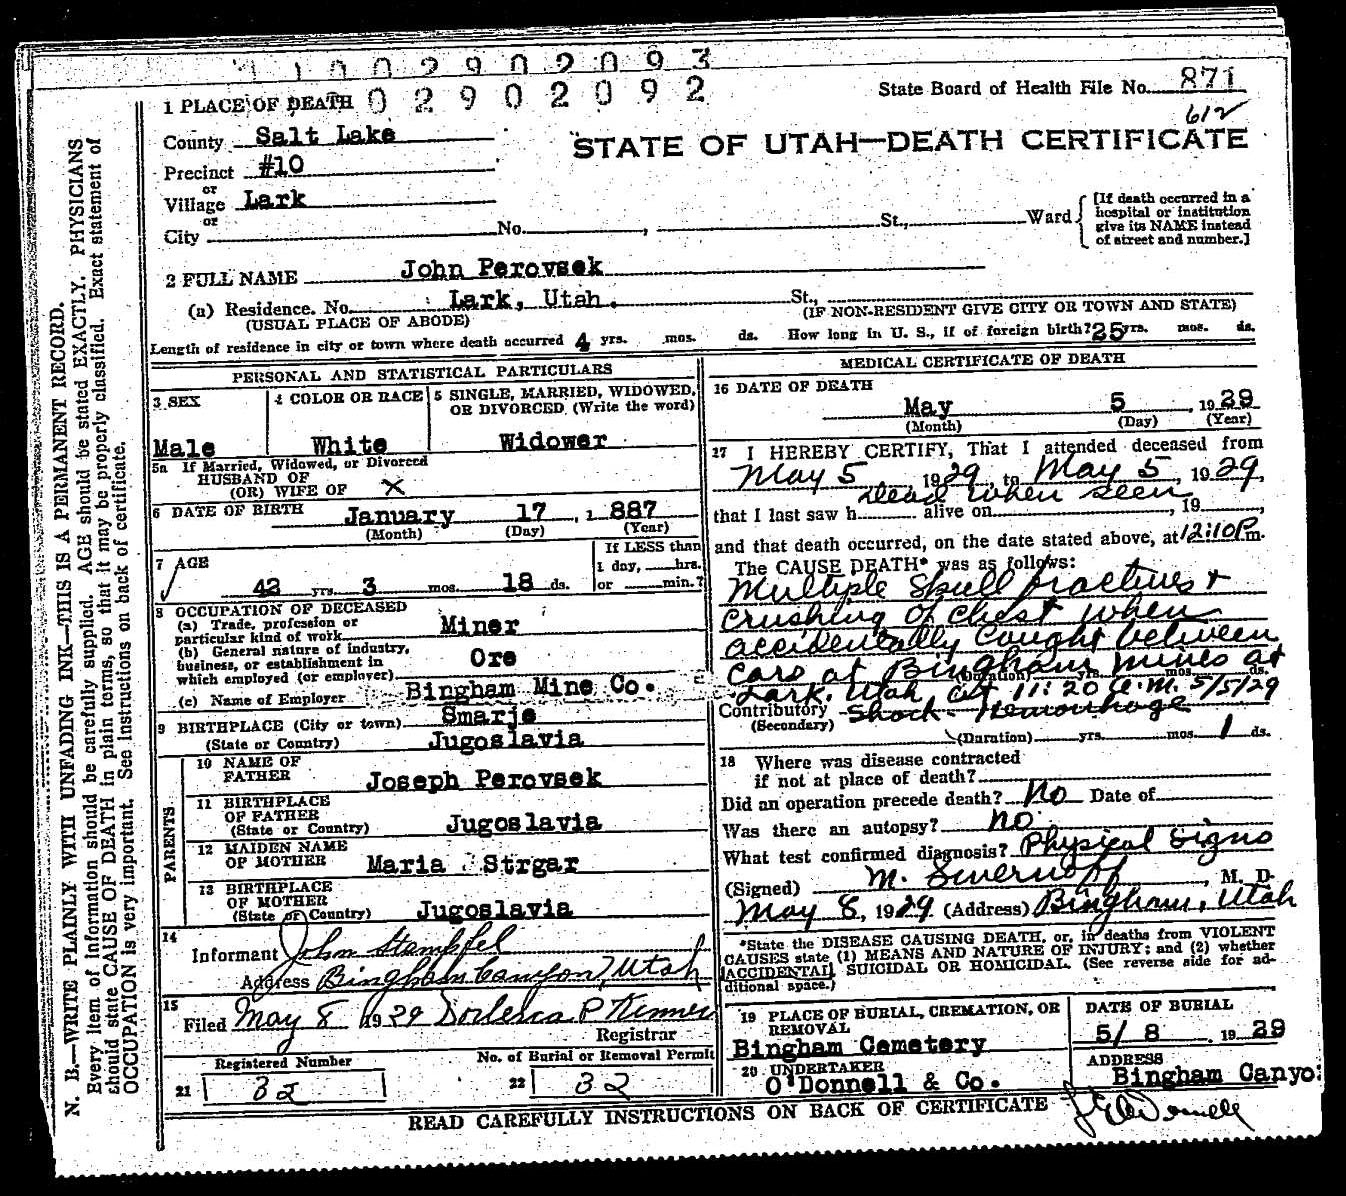 0 2 9 0 2 0 9 3
0 2 9 0 2 0 9 2
State Board of Health File No. 871
612
STATE OF UTAH—DEATH CERTIFICATE
1 PLACE OF DEATH
County Salt Lake
Precinct #10
or
Village Lark
or
City No. , St., Ward
[If death occurred in a
hospital or institution
give its NAME instead
of street and number.]
2 FULL NAME John Perovsek
(a) Residence. No. Lark, Utah. St.,
(USUAL PLACE OF ABODE) (IF NON-RESIDENT GIVE CITY OR TOWN AND STATE)
Length of residence in city or town where death occurred 4 yrs. mos. ds. How long in U. S., if of foreign birth? 25 yrs. mos. ds.
PERSONAL AND STATISTICAL PARTICULARS
3 SEX
Male
4 COLOR OR RACE
White
5 SINGLE, MARRIED, WIDOWED,
OR DIVORCED (Write the word)
Widower
5a If Married, Widowed, or Divorced
HUSBAND OF
(OR) WIFE OF X
6 DATE OF BIRTH January 17, 1887
(Month) (Day) (Year)
7 AGE
42 yrs. 3 mos. 18 ds.
If LESS than
1 day, hrs.
or min.?
8 OCCUPATION OF DECEASED
(a) Trade, profession or
particular kind of work Miner
(b) General nature of industry,
business, or establishment in
which employed (or employer) Ore
(c) Name of Employer Bingham Mine Co.
9 BIRTHPLACE (City or town) Smarje
(State or Country) Jugoslavia
PARENTS
10 NAME OF
FATHER Joseph Perovsek
11 BIRTHPLACE
OF FATHER
(State or Country) Jugoslavia
12 MAIDEN NAME
OF MOTHER Maria Strgar
13 BIRTHPLACE
OF MOTHER
(State or Country) Jugoslavia
14
Informant John Stampfel
Address Bingham Canyon, Utah
15
Filed May 8 1929 P Kinner
Registrar
Registered Number
21 32
No. of Burial or Removal Permit
22 32
MEDICAL CERTIFICATE OF DEATH
16 DATE OF DEATH
May 5, 1929
(Month) (Day) (Year)
17 I HEREBY CERTIFY, That I attended deceased from
May 5 1929, to May 5, 1929,
Dead when seen
that I last saw h alive on , 19 ,
and that death occurred, on the date stated above, at 12:10 P.m.
The CAUSE DEATH* was as follows:
Multiple Skull fractures +
crushing of chest when
accidentally caught between
cars at Bingham mines at
(Duration) yrs. mos. ds.
Lark, Utah at 11:20 A.M. 5/5/29
Contributory Shock - Hemorrhage
(Secondary)
(Duration) yrs. mos. 1 ds.
18 Where was disease contracted
if not at place of death?
Did an operation precede death? No Date of
Was there an autopsy? no
What test confirmed diagnosis? Physical Signs
(Signed) M. , M. D.
May 8, 1929 (Address) Bingham, Utah
*State the DISEASE CAUSING DEATH, or, in deaths from VIOLENT
CAUSES state (1) MEANS AND NATURE OF INJURY; and (2) whether
ACCIDENTAL, SUICIDAL OR HOMICIDAL. (See reverse side for ad-
ditional space.)
19 PLACE OF BURIAL, CREMATION, OR
REMOVAL
Bingham Cemetery
DATE OF BURIAL
5/ 8 , 1929
20 UNDERTAKER
O'Donnell & Co.
ADDRESS
Bingham Canyo
READ CAREFULLY INSTRUCTIONS ON BACK OF CERTIFICATE
N. B.—WRITE PLAINLY WITH UNFADING INK—THIS IS A PERMANENT RECORD.
Every item of information should be carefully supplied. AGE should be stated EXACTLY. PHYSICIANS
should state CAUSE OF DEATH in plain terms, so that it may be properly classified. Exact statement of
OCCUPATION is very important. See instructions on back of certificate.